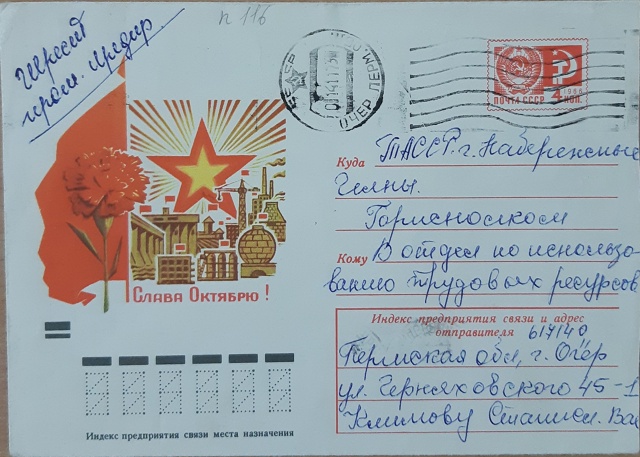 п 116
СССР
ОЧЕР ПЕРМ. ОБЛ.
ПОЧТА СССР
1966
4 КОП.
Куда ТАССР. г. Набережные
Челны.
Горисполком
Кому В отдел по использо
ванию трудовых ресурсов
СЛАВА ОКТЯБРЮ!
Индекс предприятия связи и адрес
отправителя 617140
Пермская обл, г. Очёр
ул. Черняховского 45-1
Климову Станисл. Ва
Индекс предприятия связи места назначения